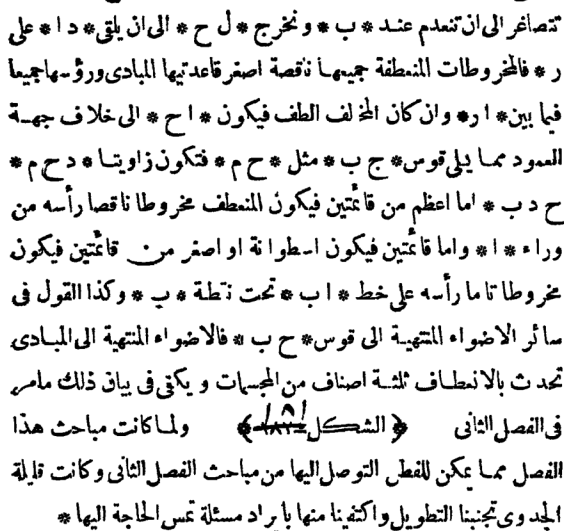 تتصاغر الى ان تنعدم عند * ب * ونخرج * ل ح * الى ان يلقى * د ا * على
ر * فالمخروطات المنعطفة جميعها ناقصة اصغر قاعدتيها المبادى ورؤسها جميعا
فيما بين * ا ر * وان كان المخلف الطف فيكون * ا ح * الى خلاف جهة
العمود مما يلى قوس * ج ب * مثل * ح م * فتكون زاويتا * د ح م *
ح د ب * اما اعظم من قائمتين فيكون المنعطف مخروطا ناقصا رأسه من
وراء * ا * واما قائمتين فيكون اسطوانة او اصغر من قائمتين فيكون
مخروطا تاما رأسه على خط * ا ب * تحت نقطة * ب * وكذا القول فى
سائر الاضواء المنتهية الى قوس * ح ب * فالاضواء المنتهية الى المبادى
تحدث بالانعطاف ثلثة اصناف من المجسمات ويكفى فى بيان ذلك مامر
فى الفصل الثانى ﴿ الشكل ﴾ ولما كانت مباحث هذا
الفصل مما يمكن للفطن التوصل اليها من مباحث الفصل الثانى وكانت قليلة
الجدوى تجنبنا التطويل واكتفينا منها بايراد مسئلة تمس الحاجة اليها *